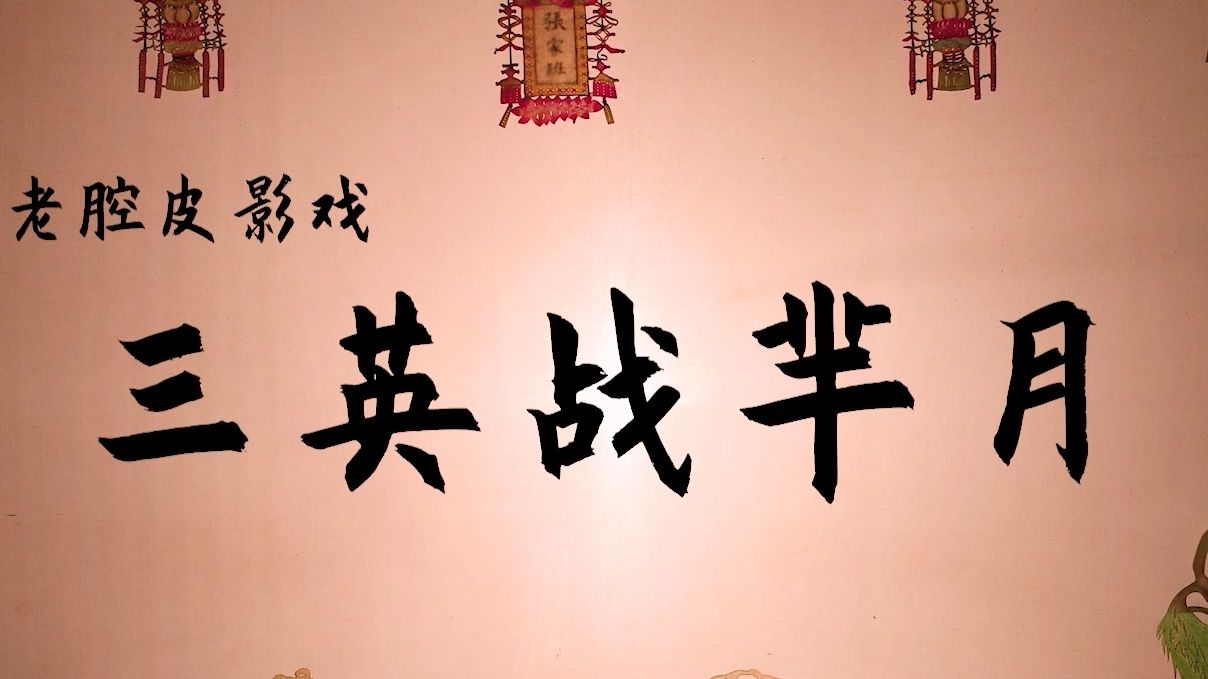 張家班
老腔皮影戏
三英战芈月